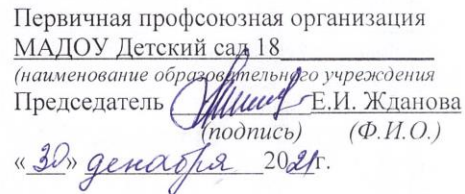 Первичная профсоюзная организация
МАДОУ Детский сад 18
(наименование образовательного учреждения
Председатель Е.И. Жданова
(подпись) (Ф.И.О.)
« 30» декабря 2021г.